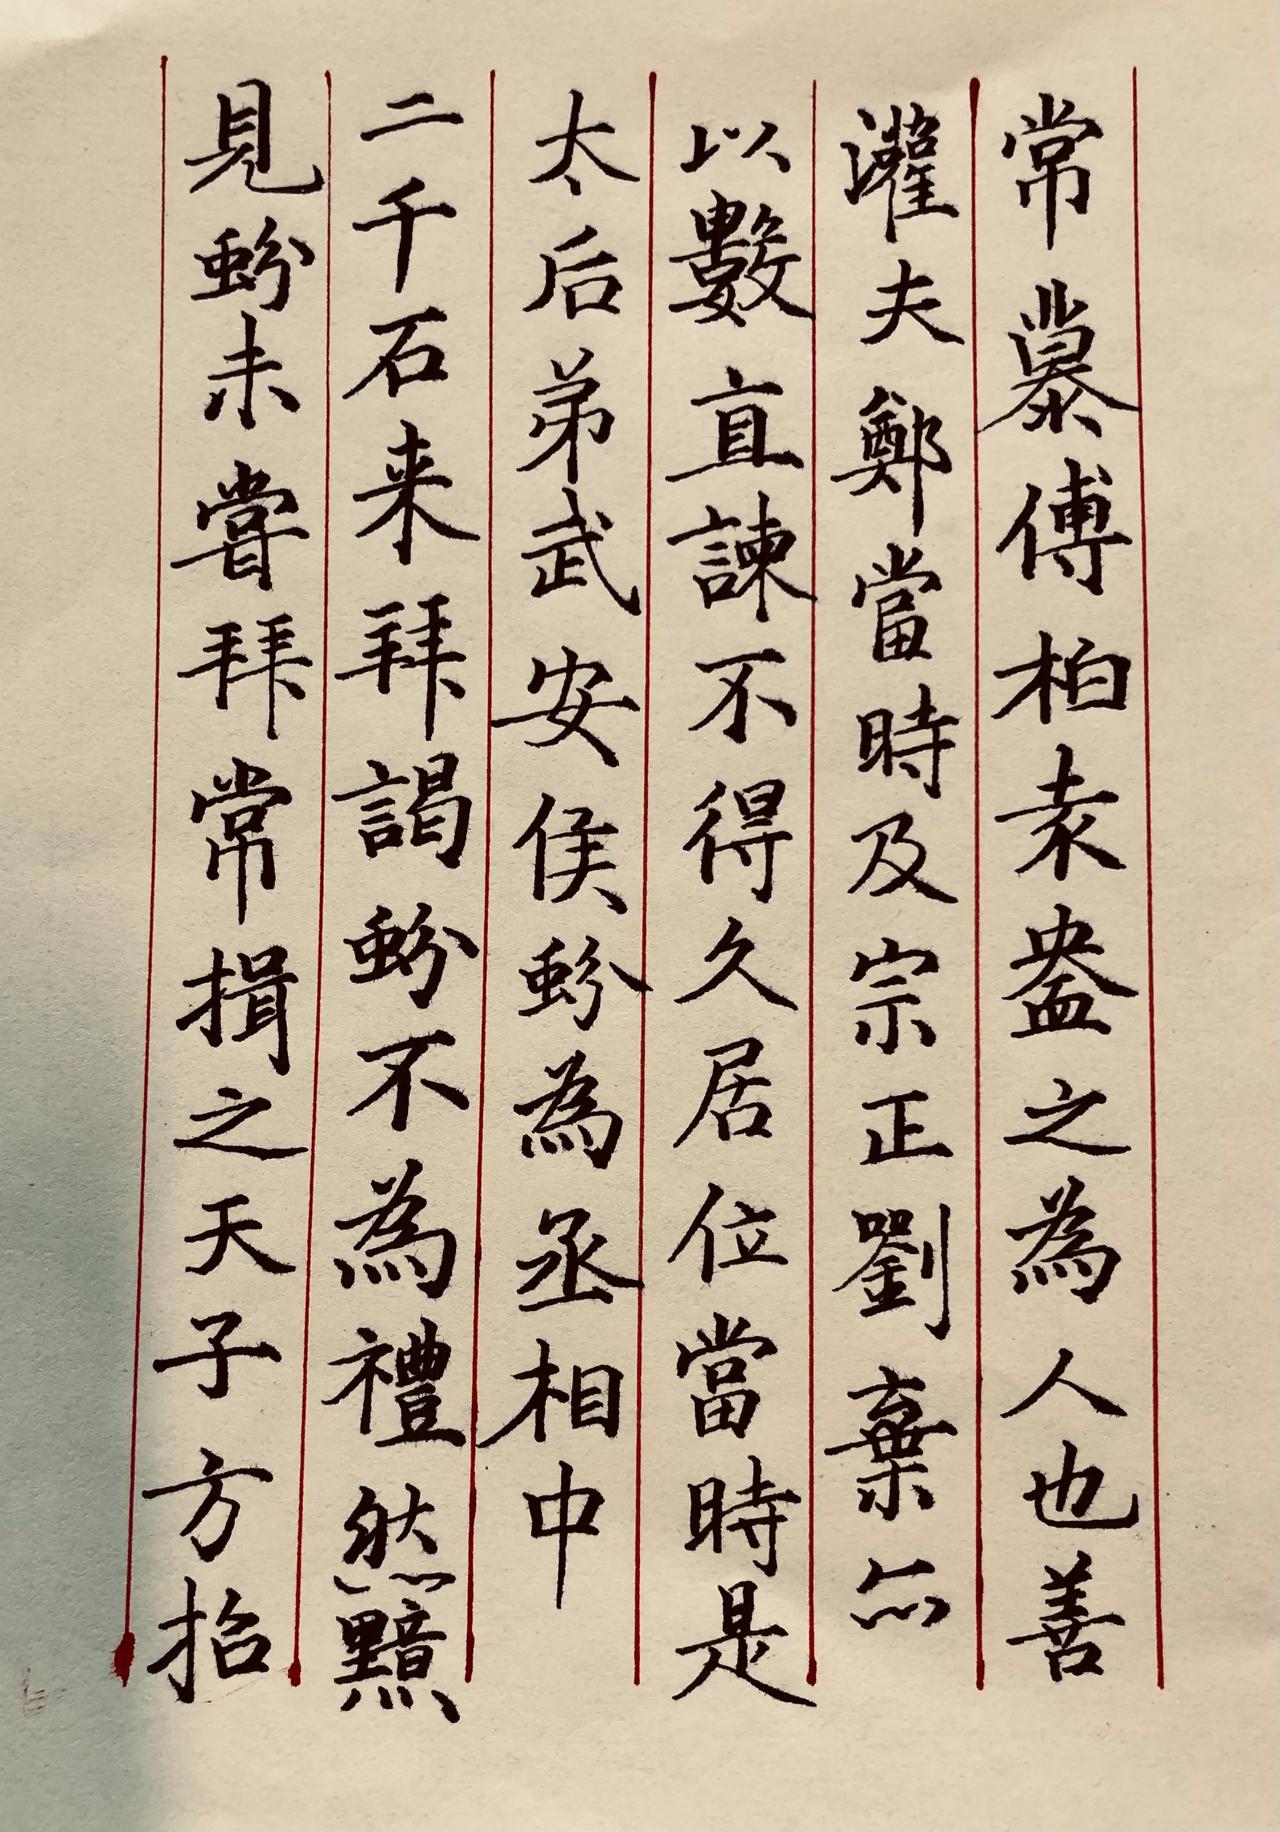 常慕傅柏袁盎之為人也善
灌夫鄭當時及宗正劉棄亦
以數直諫不得久居位當時是
太后弟武安侯蚡為丞相中
二千石来拜謁蚡不為禮然黯
見蚡未嘗拜常揖之天子方招